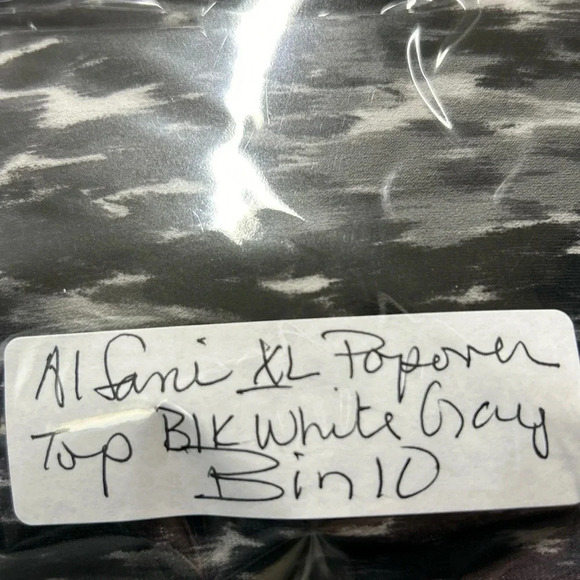 Alfani XL Popover
Top Blk White Gray
Bin 10